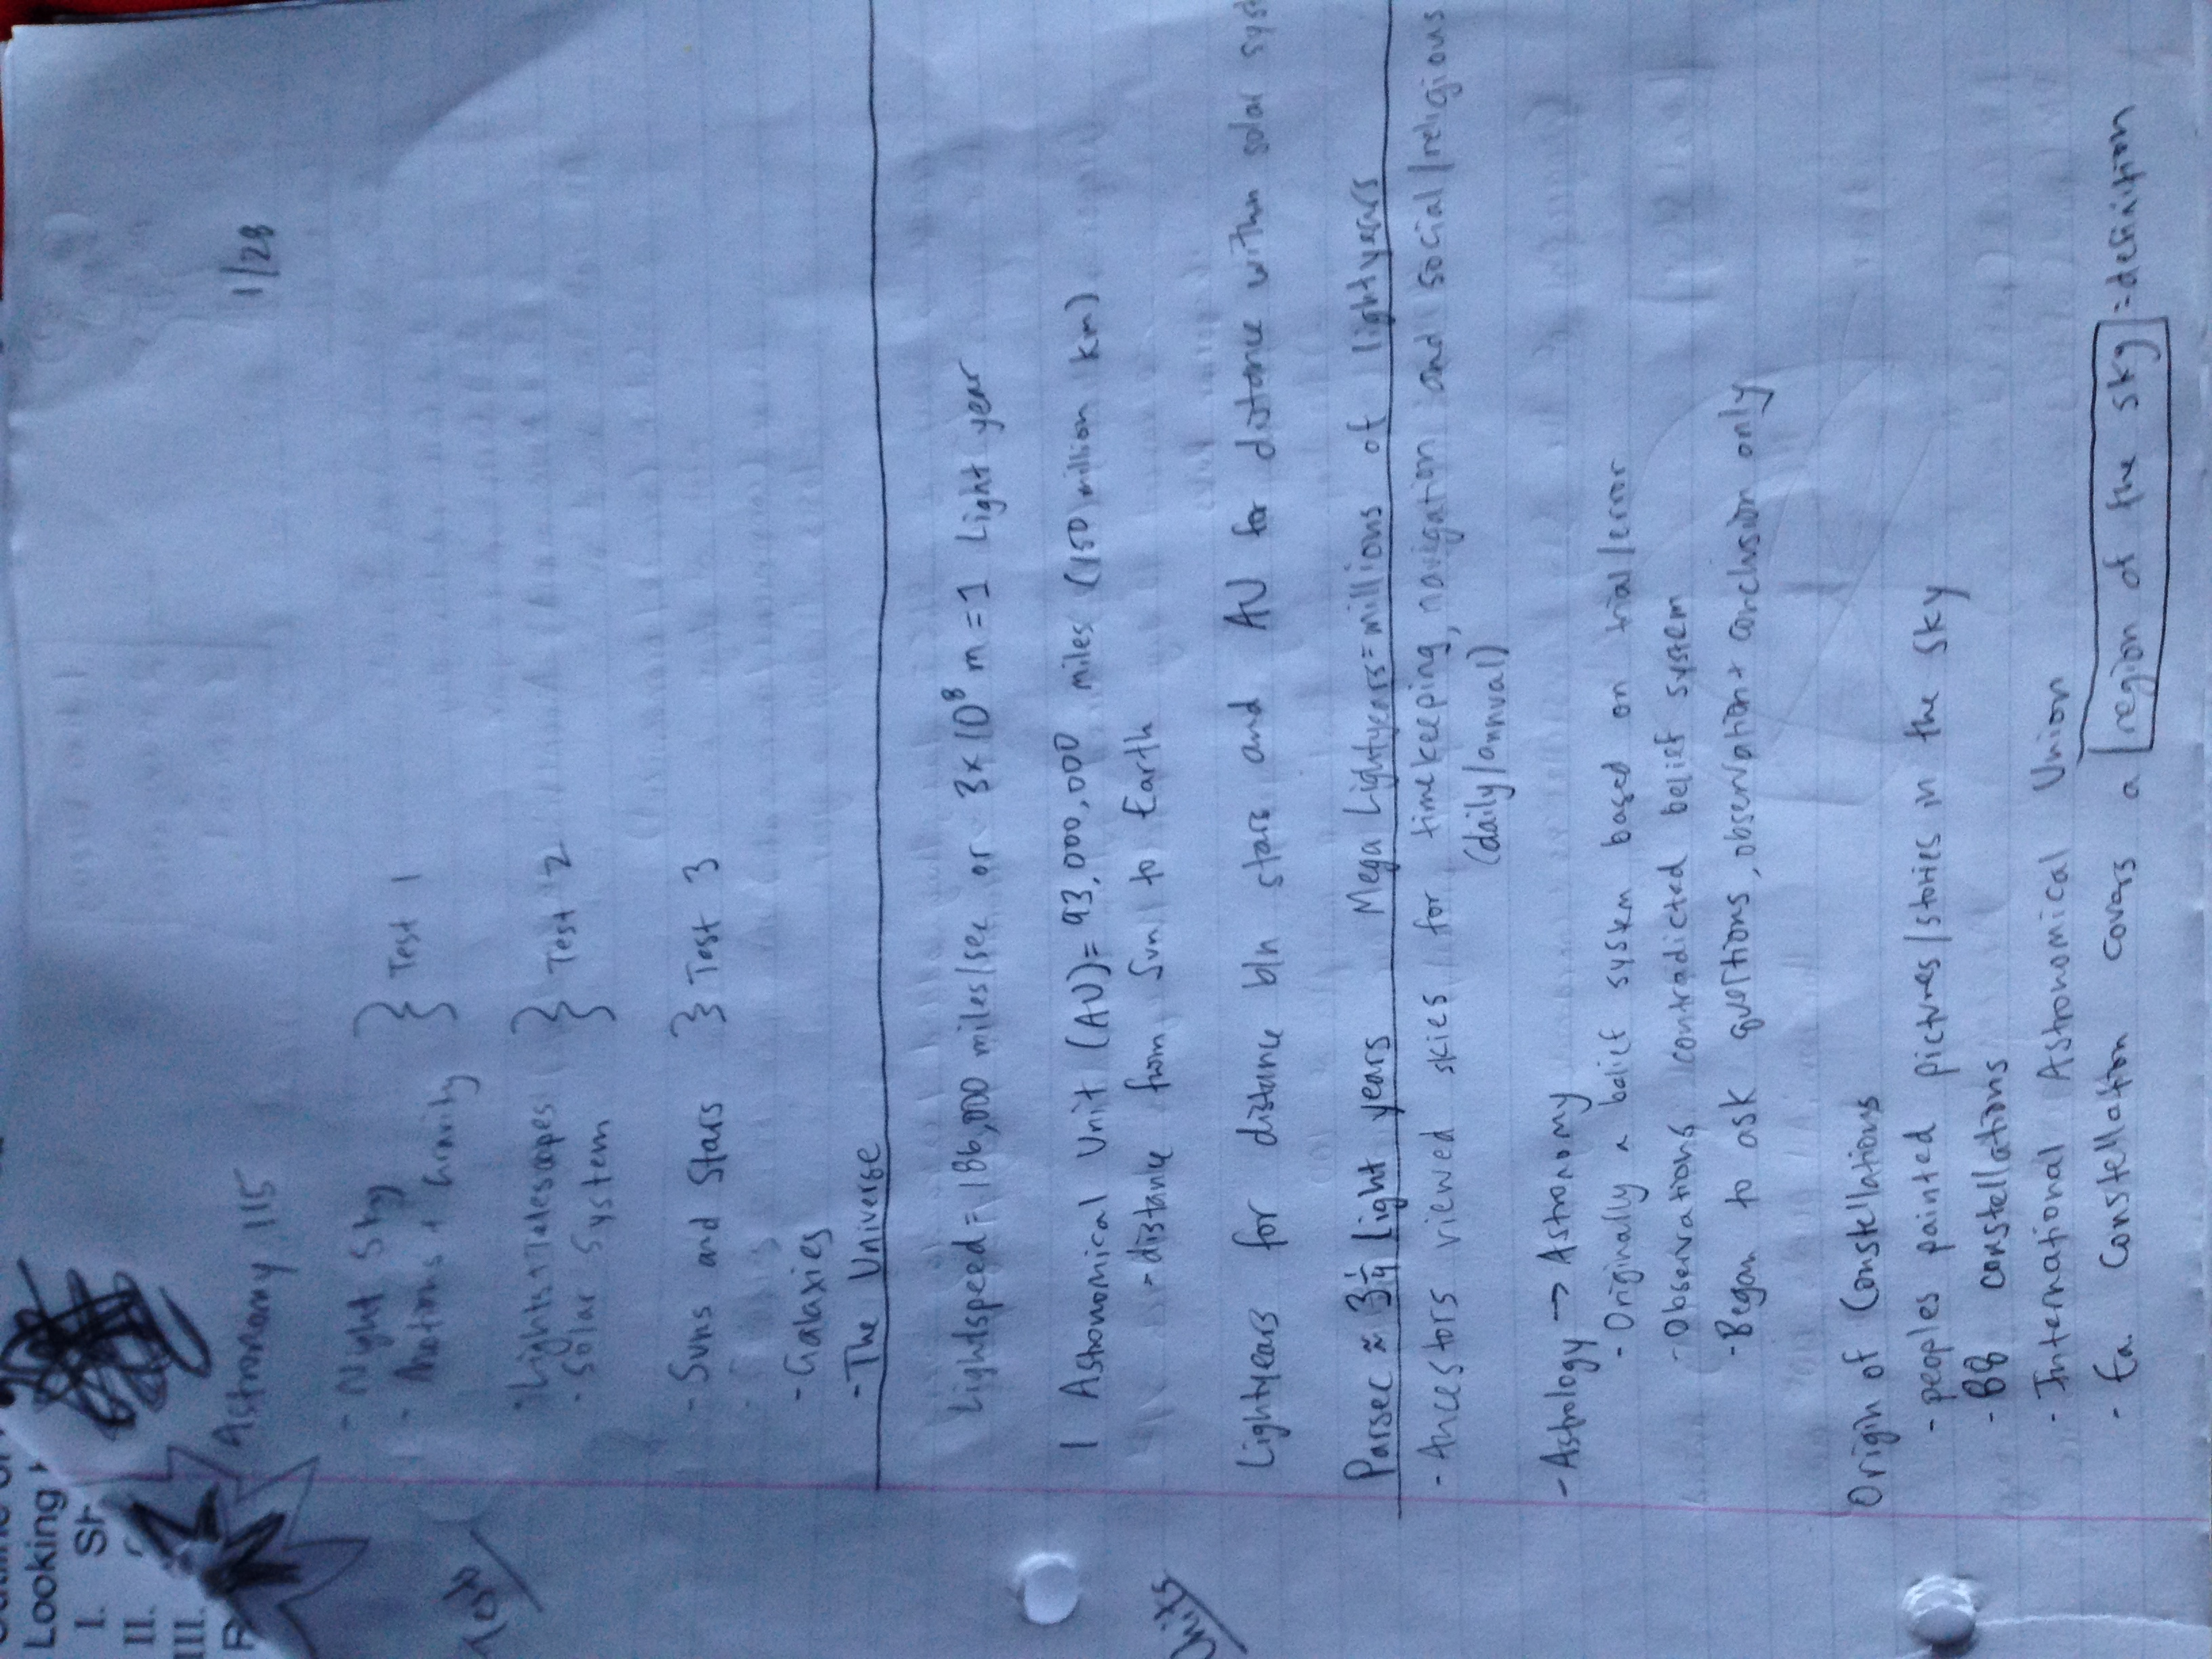 Looking
I.
II.
III.
Astronomy 115
1/28
- Night Sky
- Motions + Gravity } Test 1
- Lights + Telescopes
- Solar System } Test 2
- Suns and Stars } Test 3
- Galaxies
- The Universe
Lightspeed = 186,000 miles/sec or 3x10⁸ m = 1 Light year
Units
1 Astronomical Unit (AU) = 93,000,000 miles (150 million km)
- distance from Sun to Earth
Lightyears for distance b/n stars and AU for distance within solar syst
Parsec ≈ 3 1/4 Light years Mega Lightyears = millions of lightyears
- Ancestors viewed skies for timekeeping, navigation and social/religious
(daily/annual)
- Astrology → Astronomy
- Originally a belief system based on trial/error
- Observations contradicted belief system
- Began to ask questions, observation + conclusion only
Origin of Constellations
- peoples painted pictures/stories in the sky
- 88 constellations
- International Astronomical Union
- Ea. Constellation covers a region of the sky = definition